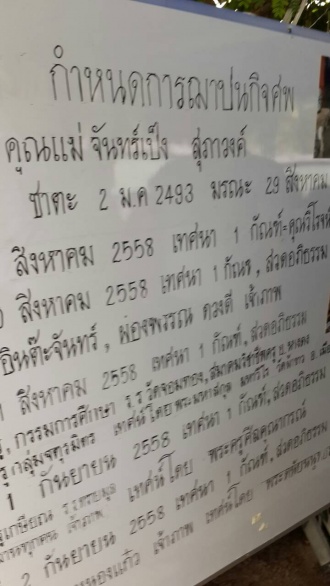 กำหนดการฌาปนกิจศพ
คุณแม่ จันทร์เป็ง สุภาวงค์
ชาตะ 2 ม.ค 2493 มรณะ 29 สิงหาคม
สิงหาคม 2558 เทศนา 1 กัณฑ์-คุณวิโรจน์
สิงหาคม 2558 เทศนา 1 กัณฑ์, สวดอภิธรรม
อินต๊ะจันทร์, ผ่องพรรณ ดวงดี เจ้าภาพ
สิงหาคม 2558 เทศนา 1 กัณฑ์, สวดอภิธรรม
กรรมการศึกษา ร.ร วัดจอมทอง,
กลุ่มจตุรมิตร เทศน์โดย พระมหาสกุล
1 กันยายน 2558 เทศนา 1 กัณฑ์, สวดอภิธรรม
เจ้าภาพ เทศน์โดย พระครูศีลคณาภรณ์
2 กันยายน 2558 เทศนา 1 กัณฑ์, สวดอภิธรรม
เจ้าภาพ เทศน์โดย